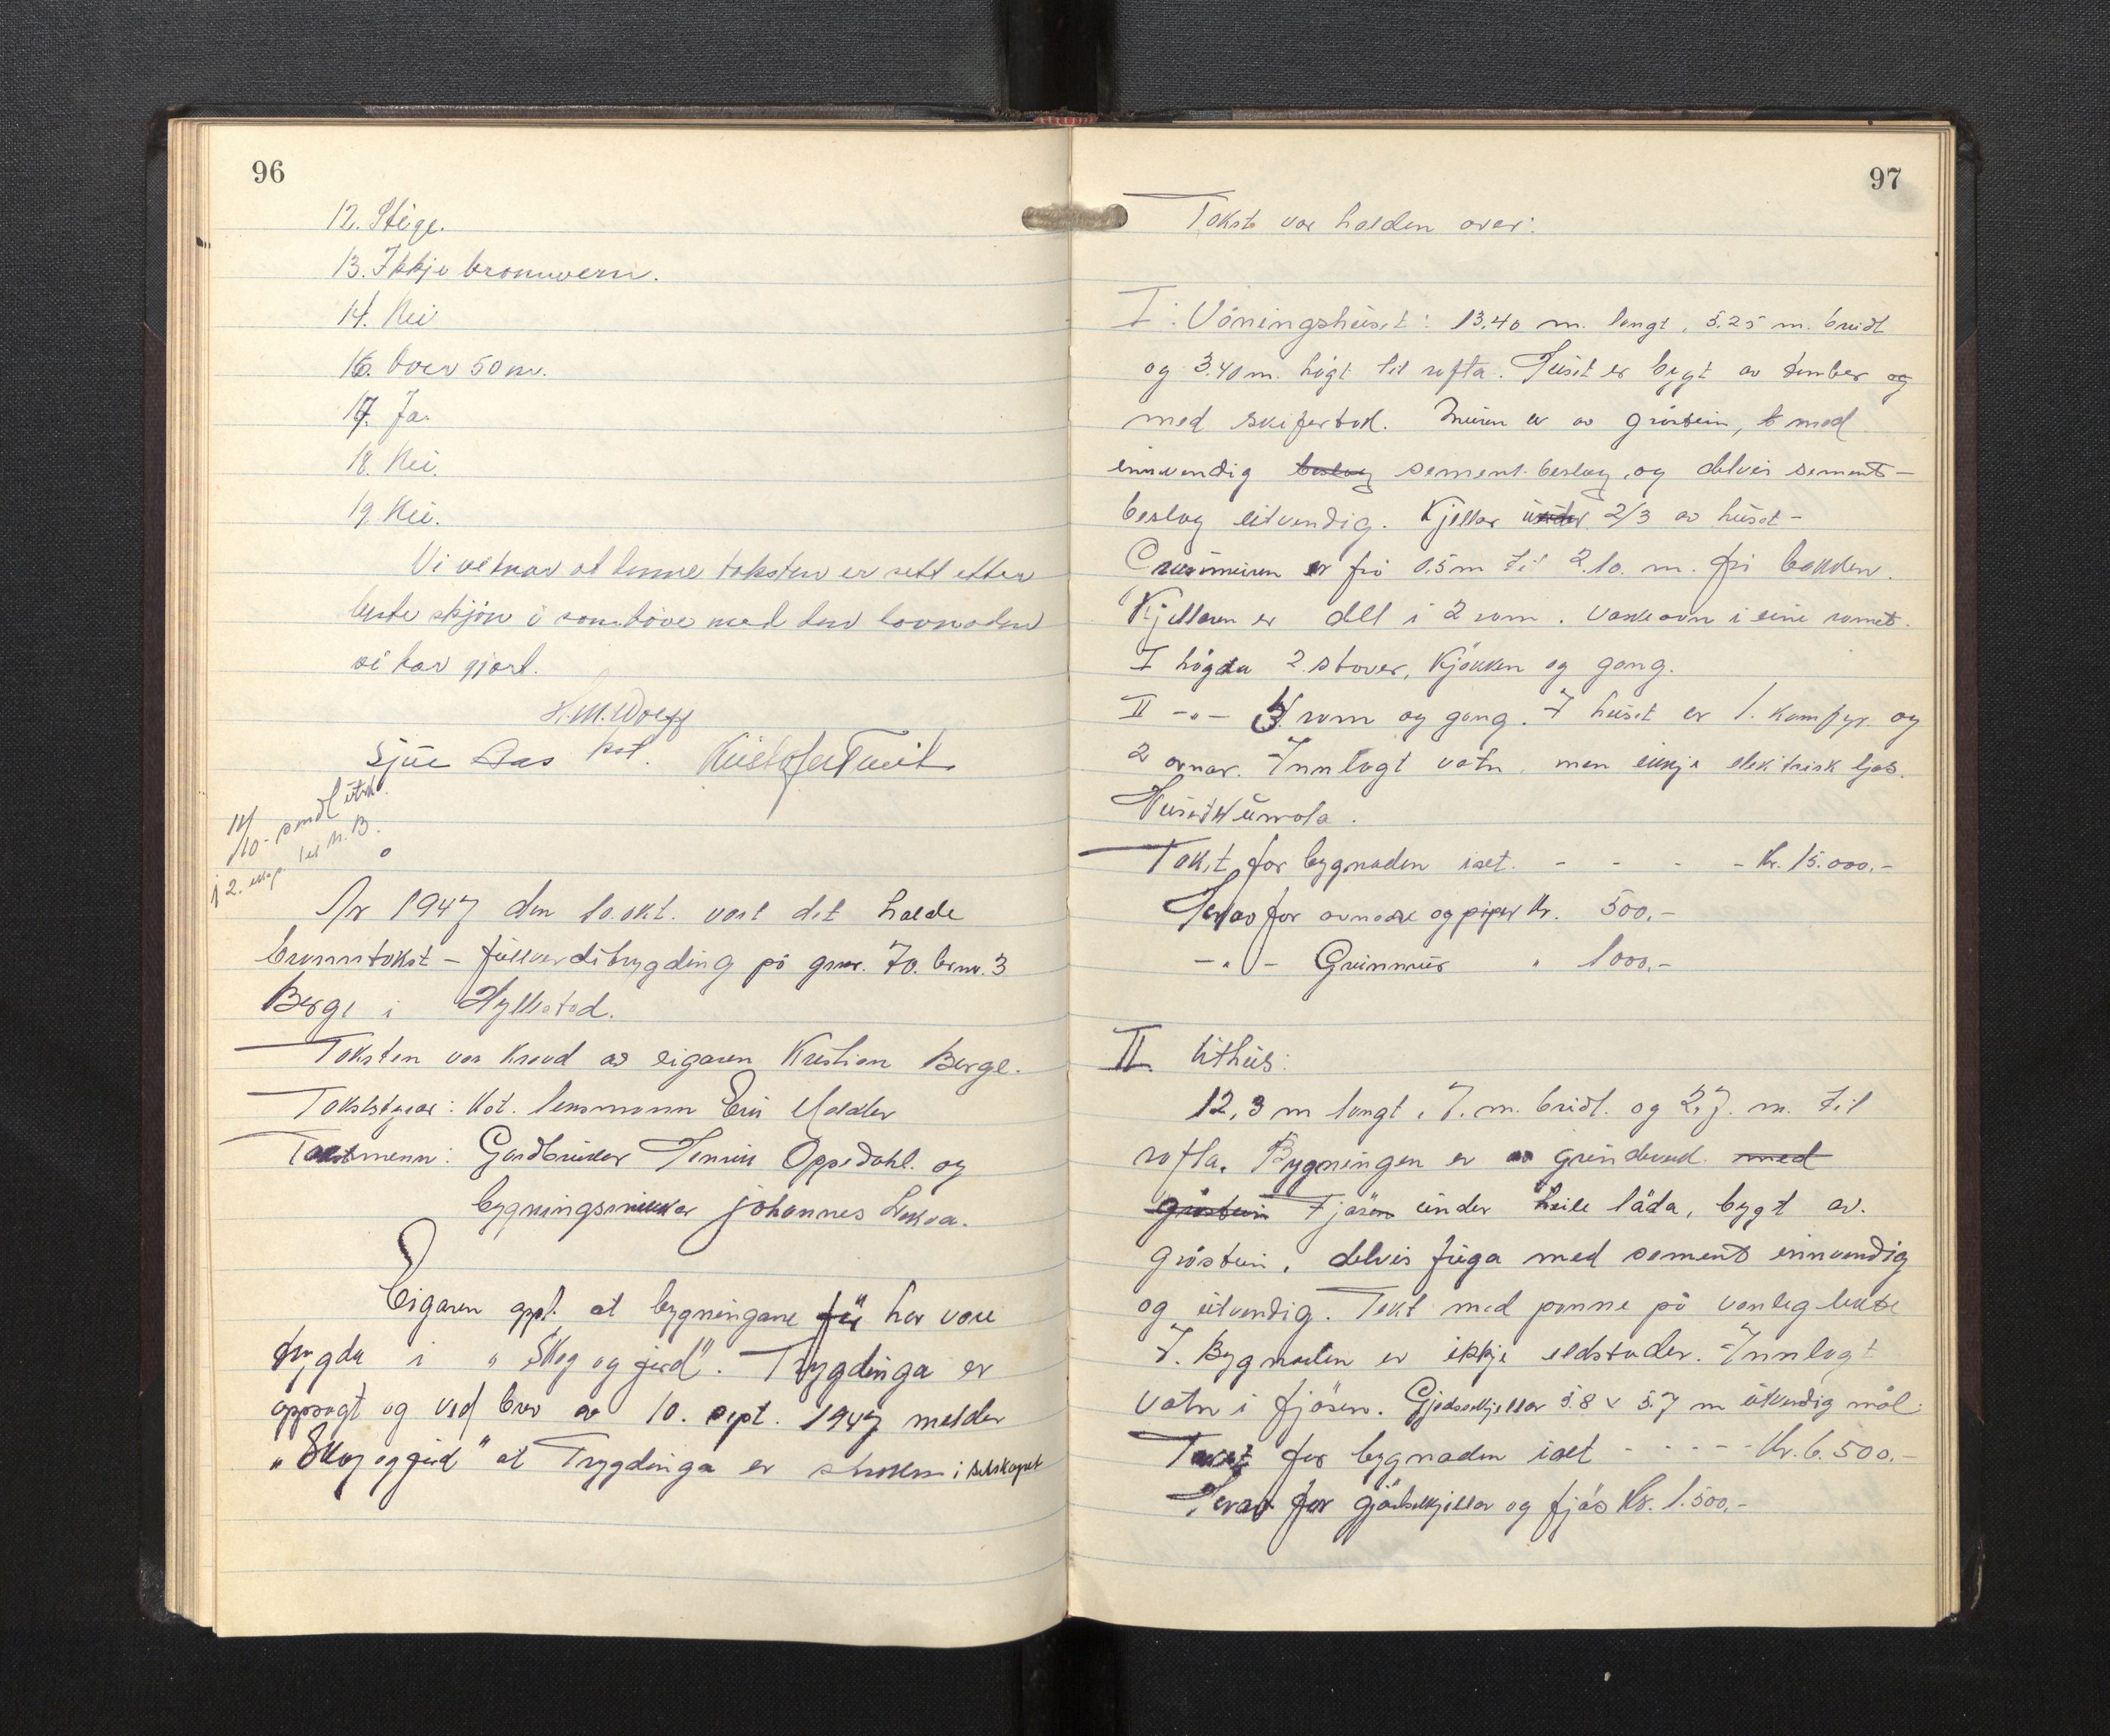 96
12. Stige.
13. Ikkje brannvern.
14. Nei
16. Over 50 m.
17. Ja.
18. Nei.
19. Nei.
Vi vetnar at denne taksten er sett etter
beste skjøn i samhöve med den lovnaden
vi har gjort.
H. M. Wolff
Sjur Aas kst. Kristofer Tveit
14/10- sendt utsk.
i 2. eksp. til N.B.
År 1947 den 10. okt. vart det halde
branntakst - fullverditrygding på gnr. 70. brnr. 3
Berge i Hyllestad.
Taksten var kravd av eigaren Kristian Berge.
Takststyrar: Kst. lensmann
Takstmenn: Gardbruker Oppedahl. og
bygningssnikkar Johannes
Eigaren oppl. at bygningane får har vore
trygda i "Skog og jord". Trygdinga er
oppsagt og ved brev av 10. sept. 1947 melder
"Skog og jord" at Trygdinga er stroken i selskapet
97
Takst var halden over:
I: Våningshuset: 13.40 m. langt, 5.25 m. breidt
og 3.40 m. høgt til rofta. Huset er bygt av tømber og
med skifertak. Muren er av gråstein, t med
innvendig beslag sement-beslag, og delvis sement-
beslag utvendig. Kjellar under 2/3 av huset -
Grunnmuren er frå 0.5 m til 2.10. m. frå bakken.
Kjellaren er delt i 2 rom. Vaskeovn i eine romet.
I høgda 2 stover, Kjøkken og gang.
II -"- 3 rom og gang. I huset er 1. komfyr. og
2 ovnar. Innlagt vatn, men ikkje elektrisk ljos.
Huset er umåla.
Takst for bygnaden iset. - - - - Kr. 15.000.-
Herav for ovnane og piper Kr. 500.-
-"- Grunnmur " 1000.-
II. Uthus:
12,3 m langt, 7. m. breidt. og 2,7. m. til
rofta. Bygningen er av grindverk. med
gråstein Fjøsen under heile låda, bygt av.
gråstein, delvis fuga med sement innvendig
og utvendig. Tekt med panne på vanleg lekte
I. Bygnaden er ikkje eldstader. Innlagt
vatn i fjøsen. Gjødselkjellar 5.8 x 5.7 m utvendig mål.
Takst for bygnaden iset - - - - - Kr. 6.500.-
Herav for gjødselkjellar og fjøs Kr. 1.500.-